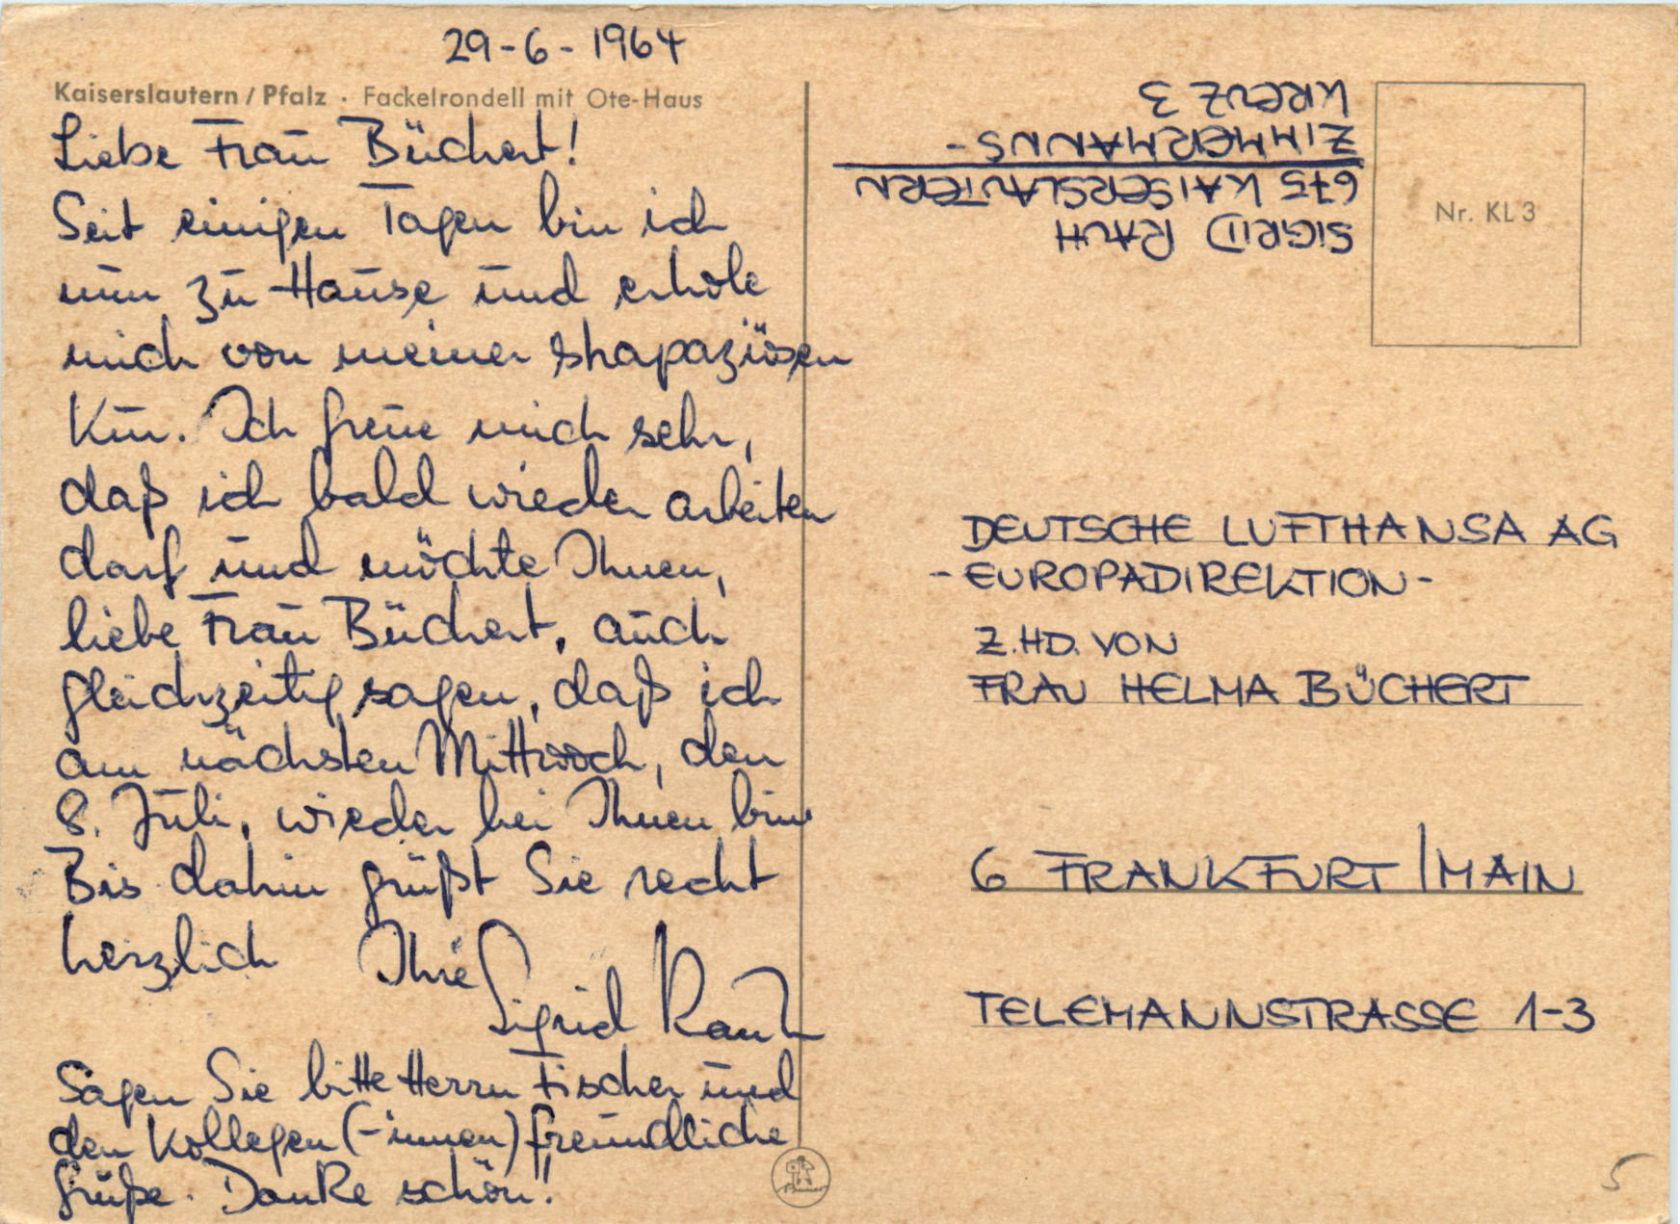 29-6-1964
Kaiserslautern / Pfalz · Fackelrondell mit Ote-Haus
Liebe Frau Büchert!
Seit einigen Tagen bin ich
nun zu Hause und erhole
mich von meiner strapaziösen
Kur. Ich freue mich sehr,
daß ich bald wieder arbeiten
darf und möchte Ihnen,
liebe Frau Büchert, auch
gleichzeitig sagen, daß ich
am nächsten Mittwoch, den
8. Juli, wieder bei Ihnen bin.
Bis dahin grüßt Sie recht
herzlich Ihre
Sigrid Rauh
Sagen Sie bitte Herrn Fischer und
den Kollegen (-innen) freundliche
Grüße. Danke schön!
SIGRID RAUH
675 KAISERSLAUTERN
ZIMMERMANNS-
KREUZ 3
Nr. KL 3
DEUTSCHE LUFTHANSA AG
- EUROPADIREKTION -
Z.HD. VON
FRAU HELMA BÜCHERT
6 FRANKFURT/MAIN
TELEMANNSTRASSE 1-3
5